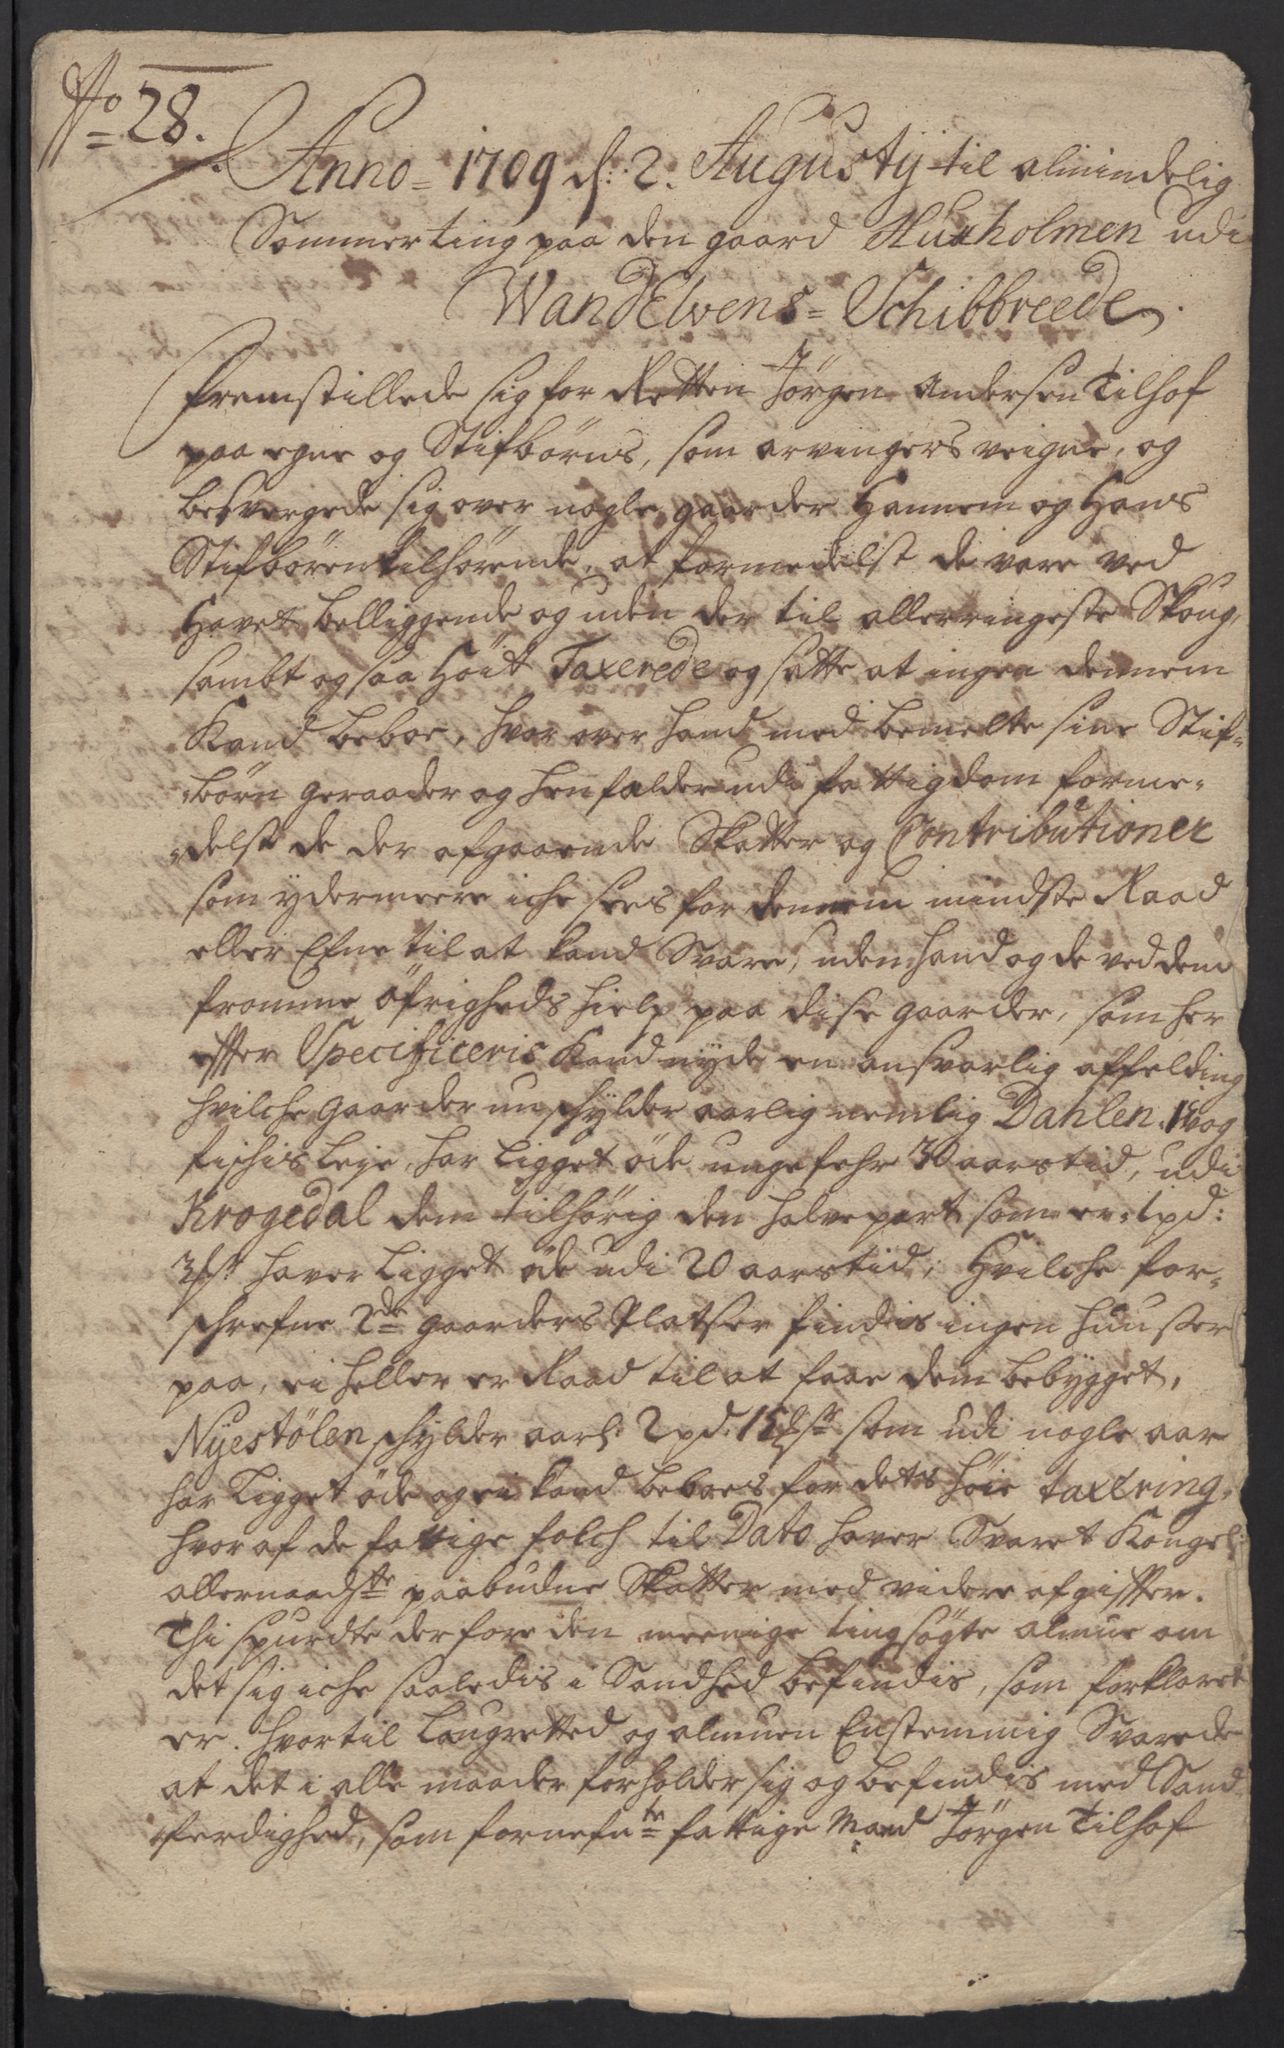 No 28.
Anno 1709 d: 2. Augustij til almindelig
Sommerting paa den gaard Huusholmen udi
WandElvens Schibbreede.
Fremstillede sig for Retten Jörgen Andersen Tilhof
paa egne og Stifbörns, som arvingers veigne, og
besvergede sig over nogle gaarder Hannem og Hans
Stifbörn tilhörende, at formedelst de vare ved
Havet belliggende og uden der til allerringeste Skoug,
sambt og saa Höit Taxerede og satte at ingen dennem
Kand beboe, hvor over hand med bemelte sine Stif-
börn geraader og henfalder udi fattigdom forme-
delst de der afgaaende Skatter og Contributioner
som ydermeere iche sees for dennem mindste Raad
eller Efne til at kand Svare, uden hand og de ved den
fromme öfrigheds hielp paa disse gaarder, som her
effter Specificeris Kand nyde en ansvarlig affelding
hvilche gaarder nu schylder aarlig nemlig Dahlen 1 vog
fischis leje, har ligget öde ungefehr 30 aars tid, udi
Krogedal dem tilhörig den halve part som er 1 pd:
3 haver ligget öde udi 20 aars tid, Hvilche for-
schrefne 2de gaarders Platser findis ingen huusser
paa, ei heller er Raad til at faae dem bebygget,
Nyestölen schylder aarl: 2 pd. 15 som udi nogle aar
har ligget öde og ei kand beboes for dets höie taxering,
hvor af de fattige folch til Dato haver Svaret Kongel:
allernaadste paabudne Skatter med videre afgiffter.
Thi spurdte derfore den meenige tingsögte almue om
det sig iche saaledis i Sandhed befindis, som forklaret
er. hvortil Laugretted og almuen Enstemmig Svarede
at det i alle maader forholder sig og befindis med Sand-
ferdighed, som fornefnte fattige Mand Jörgen Tilhof